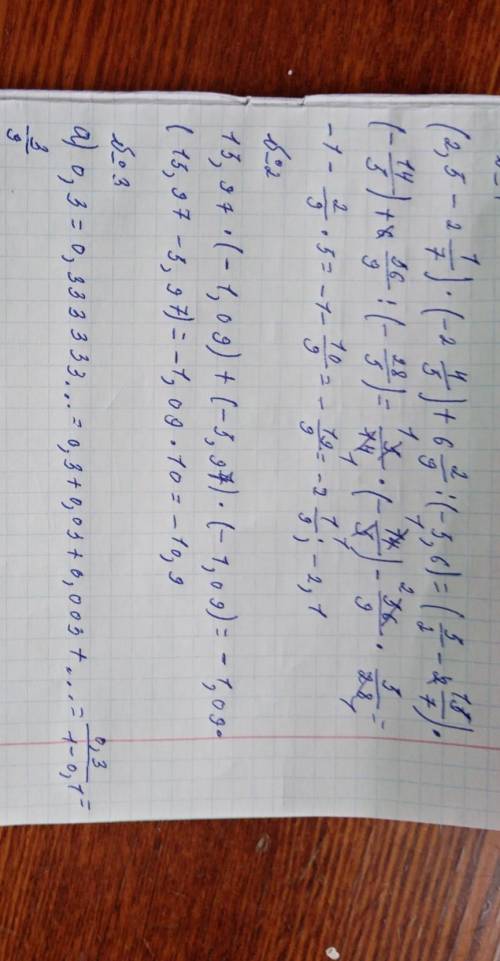 (2,5 - 2 1/7) · (-2 4/5) + 6 2/9 : (-5,6) = (5/2 - 15/7) ·
(-14/5) + 56/9 : (-28/5) = 5/14 · (-14/5) - 56/9 · 5/28 =
-1 - 2/9 · 5 = -1 - 10/9 = -19/9 = -2 1/9; -2,1
№2
15,97 · (-1,09) + (-5,97) · (-1,09) = -1,09 ·
(15,97 - 5,97) = -1,09 · 10 = -10,9
№3
а) 0,3 = 0,333333... = 0,3 + 0,03 + 0,003 + .... = 0,3/1-0,1 =
3/9